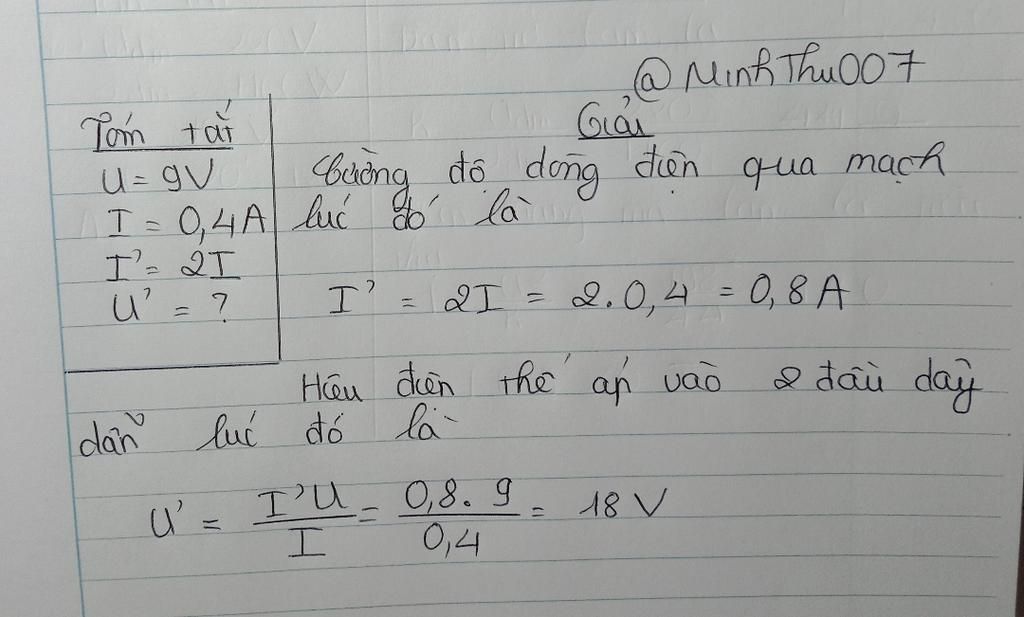 @MinhThu007
Tóm tắt
U = 9V
I = 0,4A
I' = 2I
U' = ?
Giải
Cường độ dòng điện qua mạch
lúc đó là
I' = 2I = 2.0,4 = 0,8 A
Hiệu điện thế áp vào 2 đầu dây
dẫn lúc đó là
U' = I'U / I = 0,8. 9 / 0,4 = 18 V